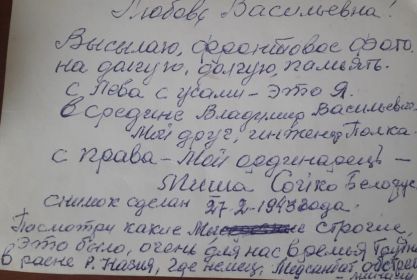 Любовь Васильевна!
Высылаю, фронтовое фото.
на долгую, долгую, память.
с Лева с усами - это Я.
в средине Владимир Васильевич
Мой друг, инженер Полка.
с права - Мой ординарец -
Миша Сойко Белорус
снимок сделан 27-2-1943 года.
Посмотри какие строгие,
Это было, очень для нас время
в р. Назия, где немец, Медсанбат